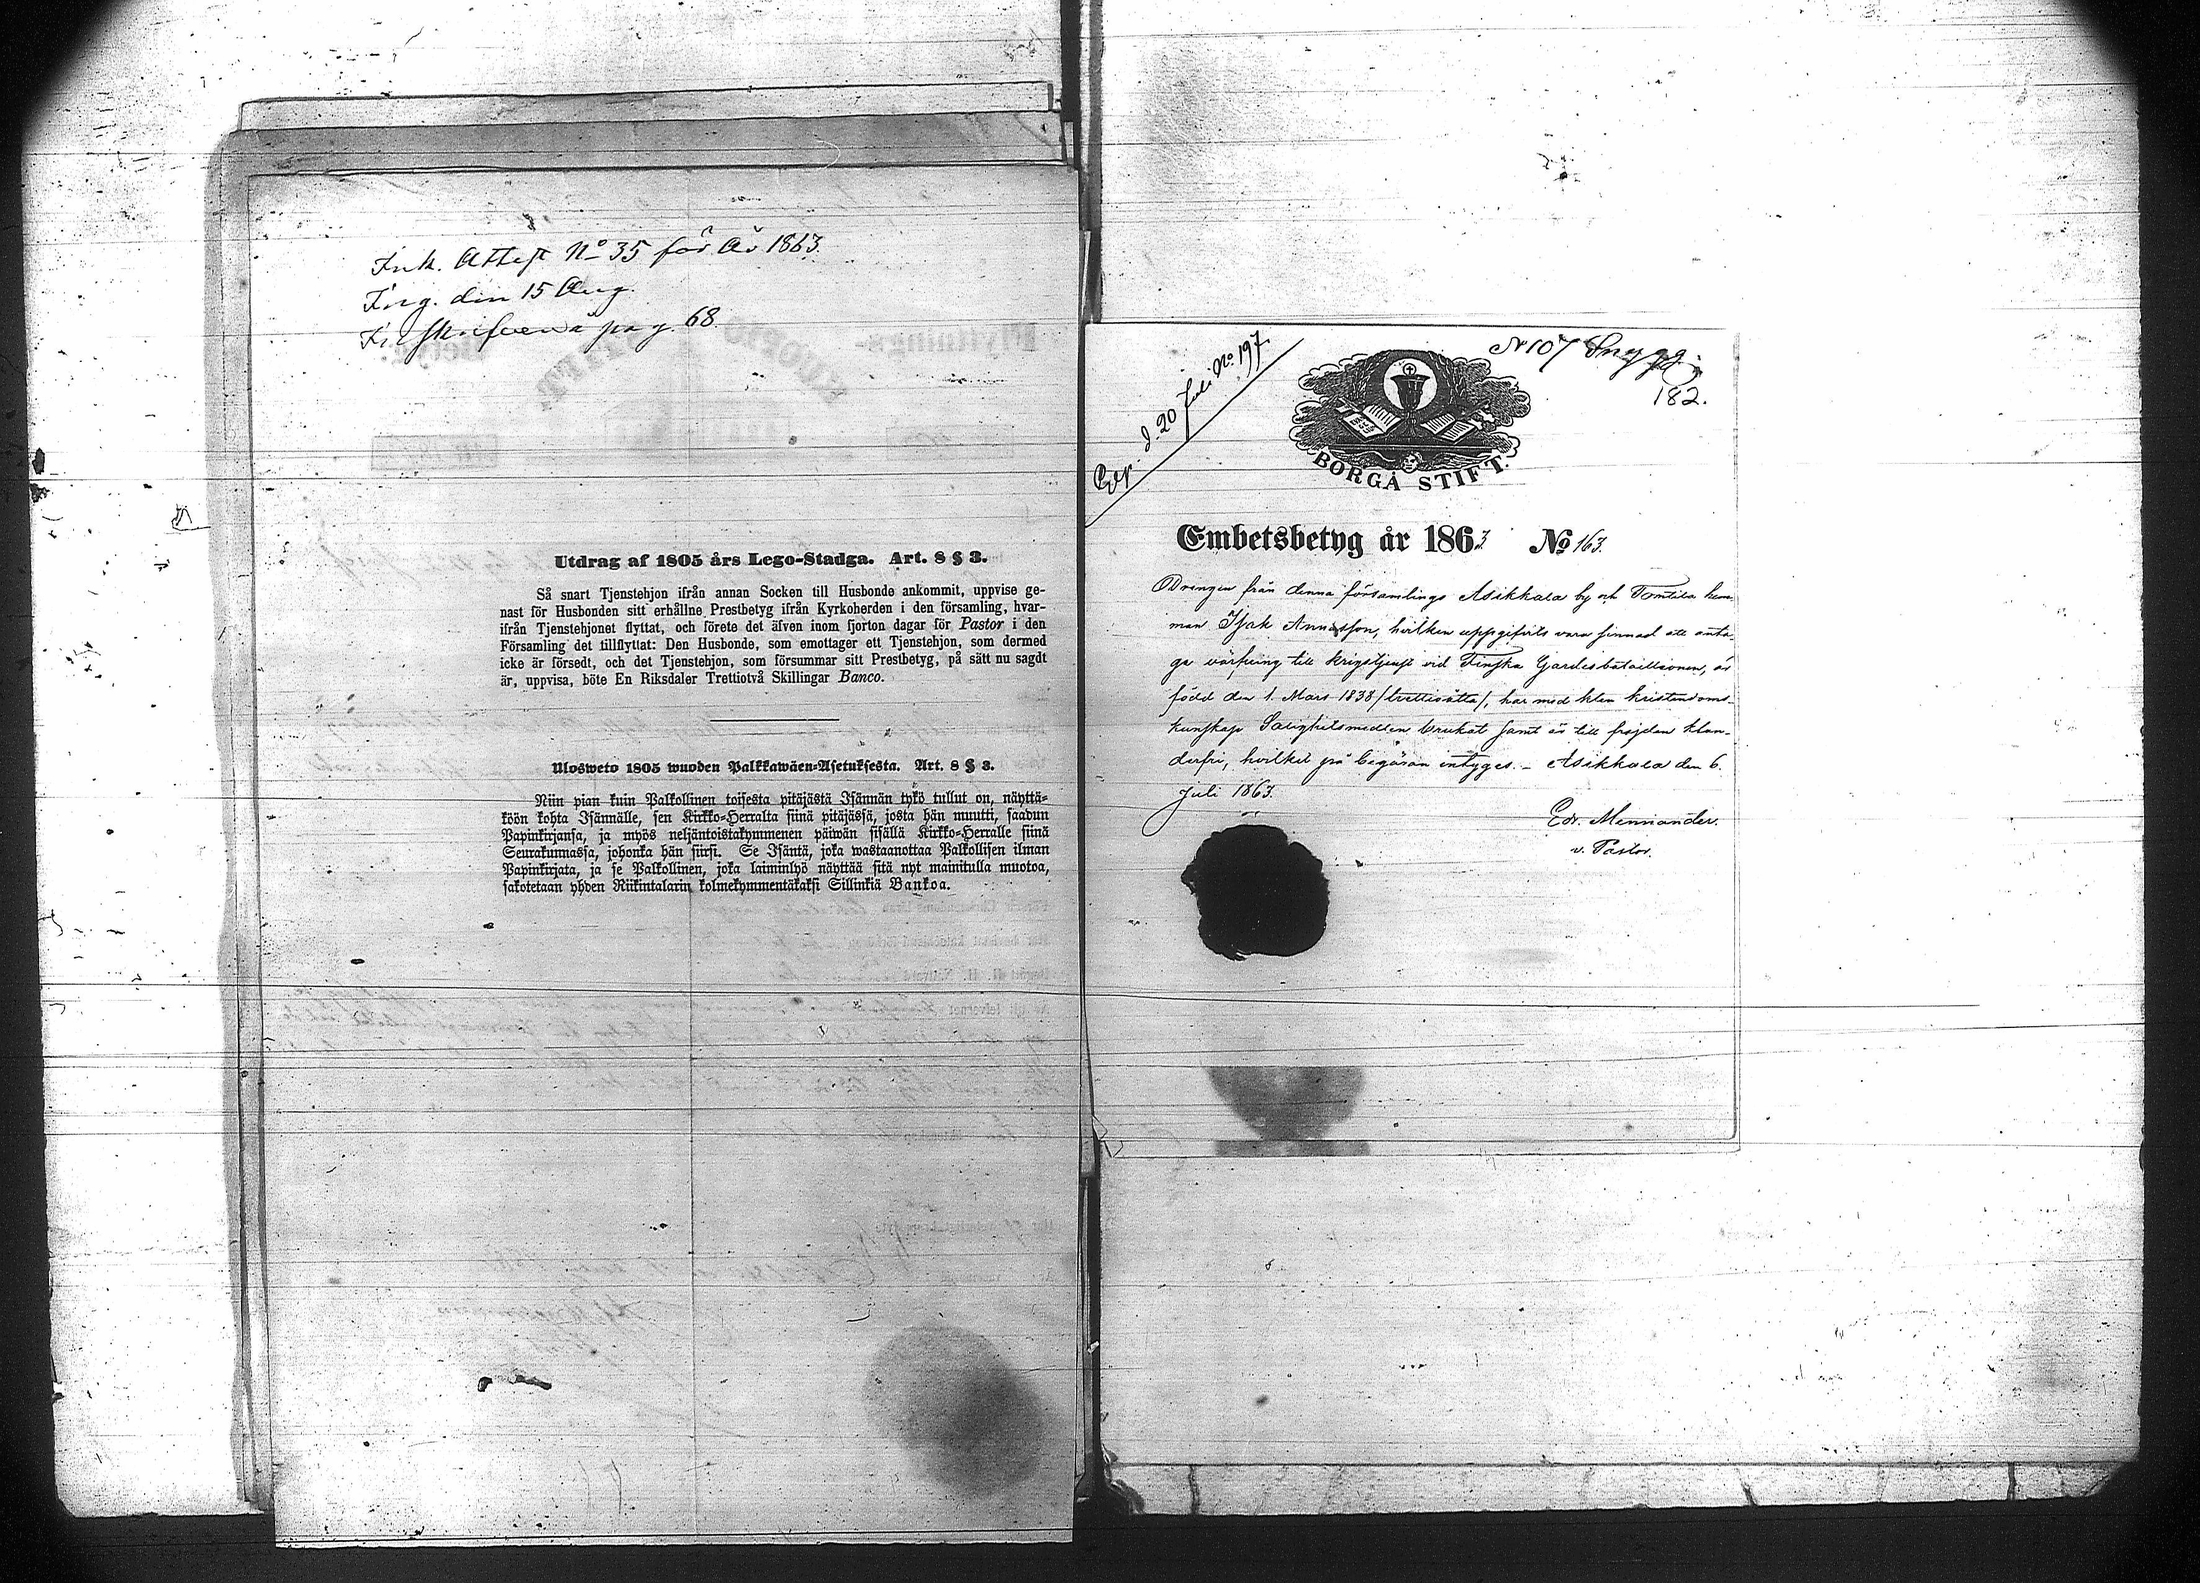 Ink. Attest No 35 för År 1863.
Ing. den 15 Aug.
Inskrifven å pag. 68.
Utdrag af 1805 års Lego-Stadga. Art. 8 § 3.
Så snart Tjenstehjon ifrån annan Socken till Husbonde ankommit, uppvise ge-
nast för Husbonden sitt erhållne Prestbetyg ifrån Kyrkoherden i den församling, hvar-
ifrån Tjenstehjonet flyttat, och förete det äfven inom fjorton dagar för Pastor i den
Församling det tillflyttat: Den Husbonde, som emottager ett Tjenstehjon, som dermed
icke är försedt, och det Tjenstehjon, som försummar sitt Prestbetyg, på sätt nu sagdt
är, uppvisa, böte En Riksdaler Trettiotvå Skillingar Banco.
Ulosweto 1805 wuoden Palkkawäen-Asetuksesta. Art. 8 § 3.
Niin pian kuin Palkollinen toisesta pitäjästä Isännän tykö tullut on, näyttä-
köön kohta Isännälle, sen Kirkko-Herralta siinä pitäjässä, josta hän muutti, saadun
Papinkirjansa, ja myös neljäntoistakymmenen päiwän sisällä Kirkko-Herralle siinä
Seurakunnassa, johonka hän siirsi. Se Isäntä, joka wastaanottaa Palkollisen ilman
Papinkirjata, ja se Palkollinen, joka laiminlyö näyttää sitä nyt mainitulla muotoa,
sakotetaan yhden Riikintalarin kolmekymmentäkaksi Sillinkiä Bankoa.
d. 20 Juli No 197
No 107 Snygg
182.
BORGÅ STIFT.
Embetsbetyg år 1863 No 163.
Drengen från denna församlings Asikkala by och Tomtila hem-
man Isak Annasson, hvilken uppgifvits vara sinnad att anta-
ga värfning till krigstjenst vid Finska Gardesbataillonen, är
född den 1. Mars 1838 /trettioåtta/, har med klen kristendoms-
kunskap Salighetsmedlen brukat samt är till frejdan klan-
derfri, hvilket på begäran intygas. – Asikkala den 6.
Juli 1863.
Edv. Mennander.
v. Pastor.